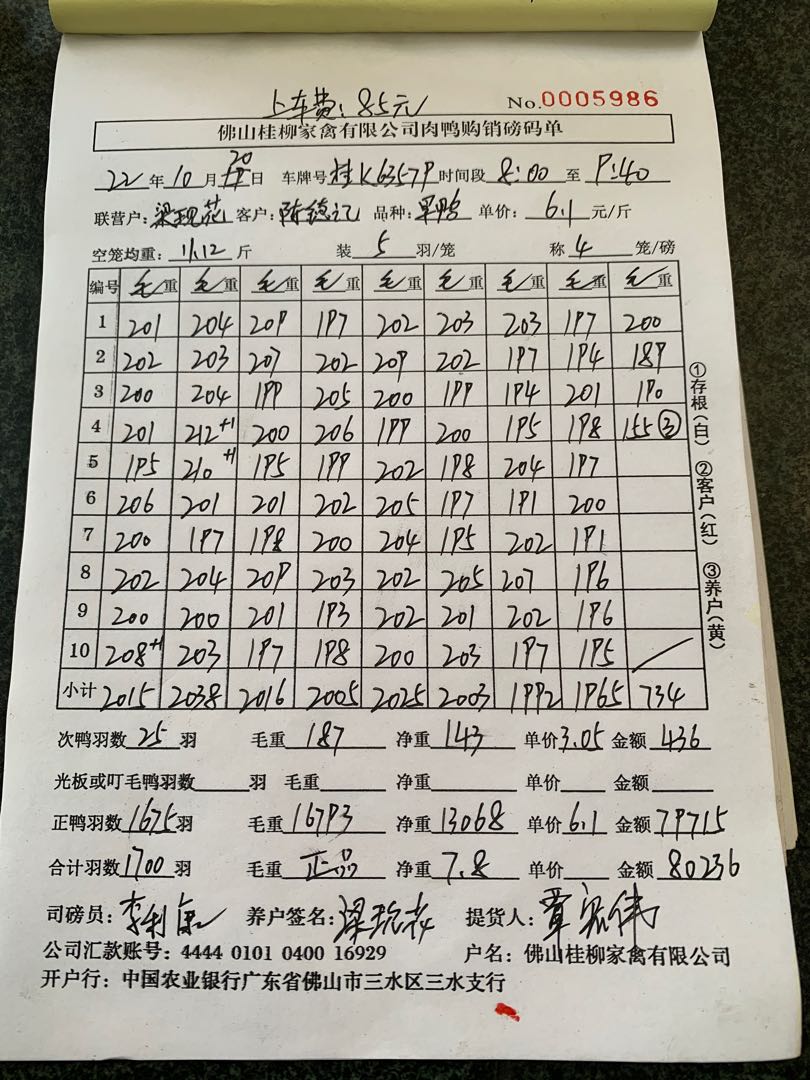 上车费：85元 No.0005986
佛山桂柳家禽有限公司肉鸭购销磅码单
22年10月20日 车牌号桂K6357P 时间段8:00至9:40
联营户：梁琉花 客户：陈德记 品种：旱鸭 单价：6.1元/斤
空笼均重：11.12斤 装5羽/笼 称4笼/磅
编号 毛重 毛重 毛重 毛重 毛重 毛重 毛重 毛重 毛重
1 201 204 209 197 202 203 203 197 200
2 202 203 207 202 209 202 197 194 189
3 200 204 199 205 200 199 194 201 190
4 201 212+1 200 206 199 200 195 198 155③
5 195 210+1 195 199 202 198 204 197
6 206 201 201 202 205 197 191 200
7 200 197 198 200 204 195 202 191
8 202 204 209 203 202 205 207 196
9 200 200 201 193 202 201 202 196
10 208+1 203 197 198 200 203 197 195
小计 2015 2038 2016 2005 2025 2003 1992 1965 734
次鸭羽数25羽 毛重187 净重143 单价3.05 金额436
光板或叮毛鸭羽数 羽 毛重 净重 单价 金额
正鸭羽数1675羽 毛重16793 净重13068 单价6.1 金额79715
合计羽数1700羽 毛重正品 净重7.8 单价 金额80236
司磅员：李利 养户签名：梁琉花 提货人：覃宏伟
公司汇款账号：4444 0101 0400 16929 户名：佛山桂柳家禽有限公司
开户行：中国农业银行广东省佛山市三水区三水支行
①存根（白） ②客户（红） ③养户（黄）